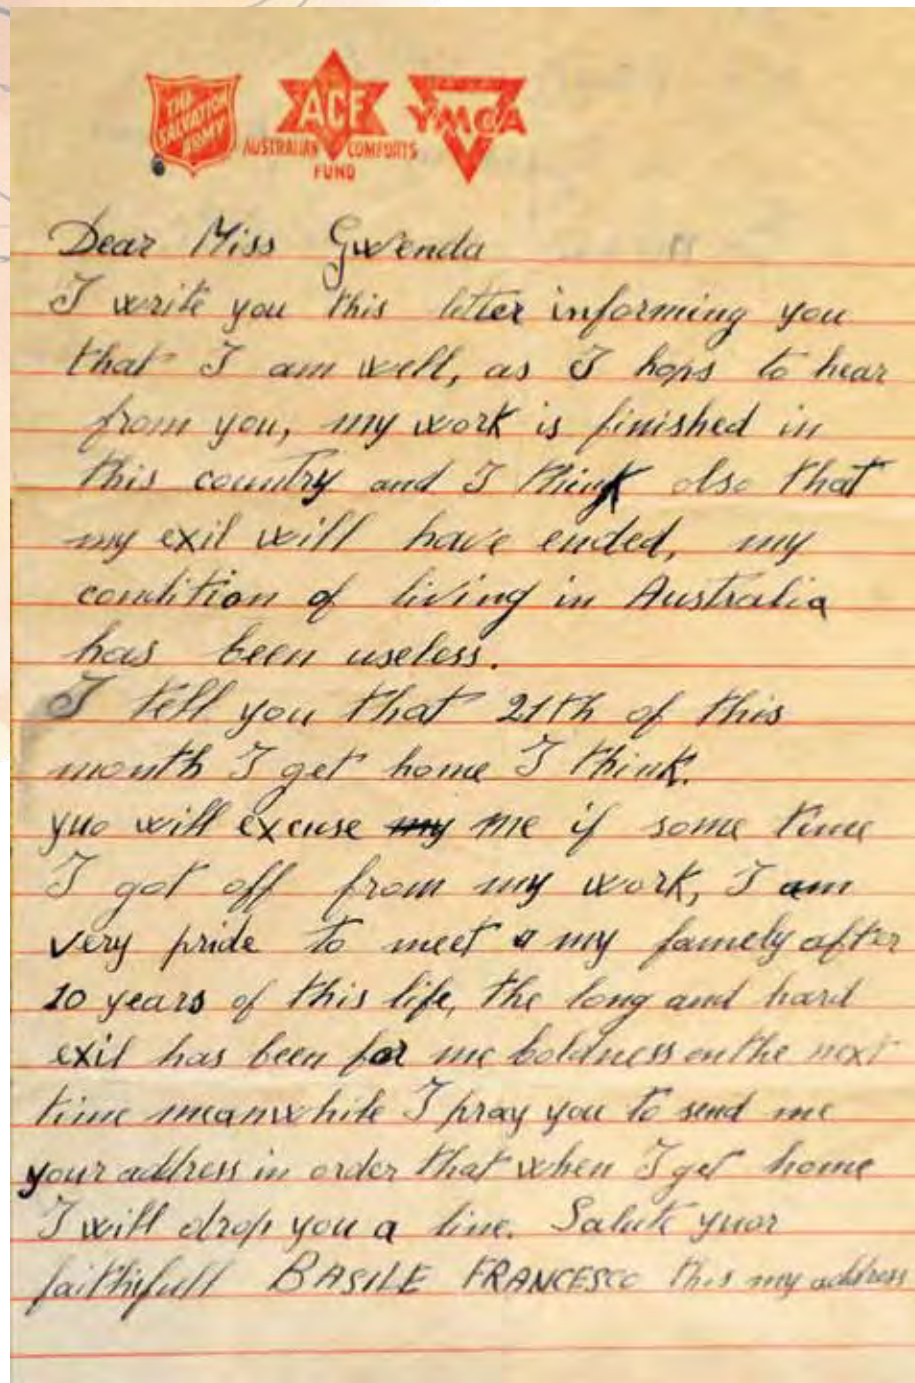 THE
SALVATION
ARMY
ACF
AUSTRALIAN COMFORTS
FUND
YMCA
Dear Miss Gwenda
I write you this letter informing you
that I am well, as I hops to hear
from you, my work is finished in
this country and I think also that
my exil will have ended, my
condition of living in Australia
has been useless.
I tell you that 21th of this
month I get home I think.
yuo will excuse my me if some time
I got off from my work, I am
very pride to meet a my famely after
10 years of this life, the long and hard
exil has been for me boldness on the next
time meanwhile I pray you to send me
your address in order that when I get home
I will drop you a line. Salute yuor
faithifull BASILE FRANCESCO this my address